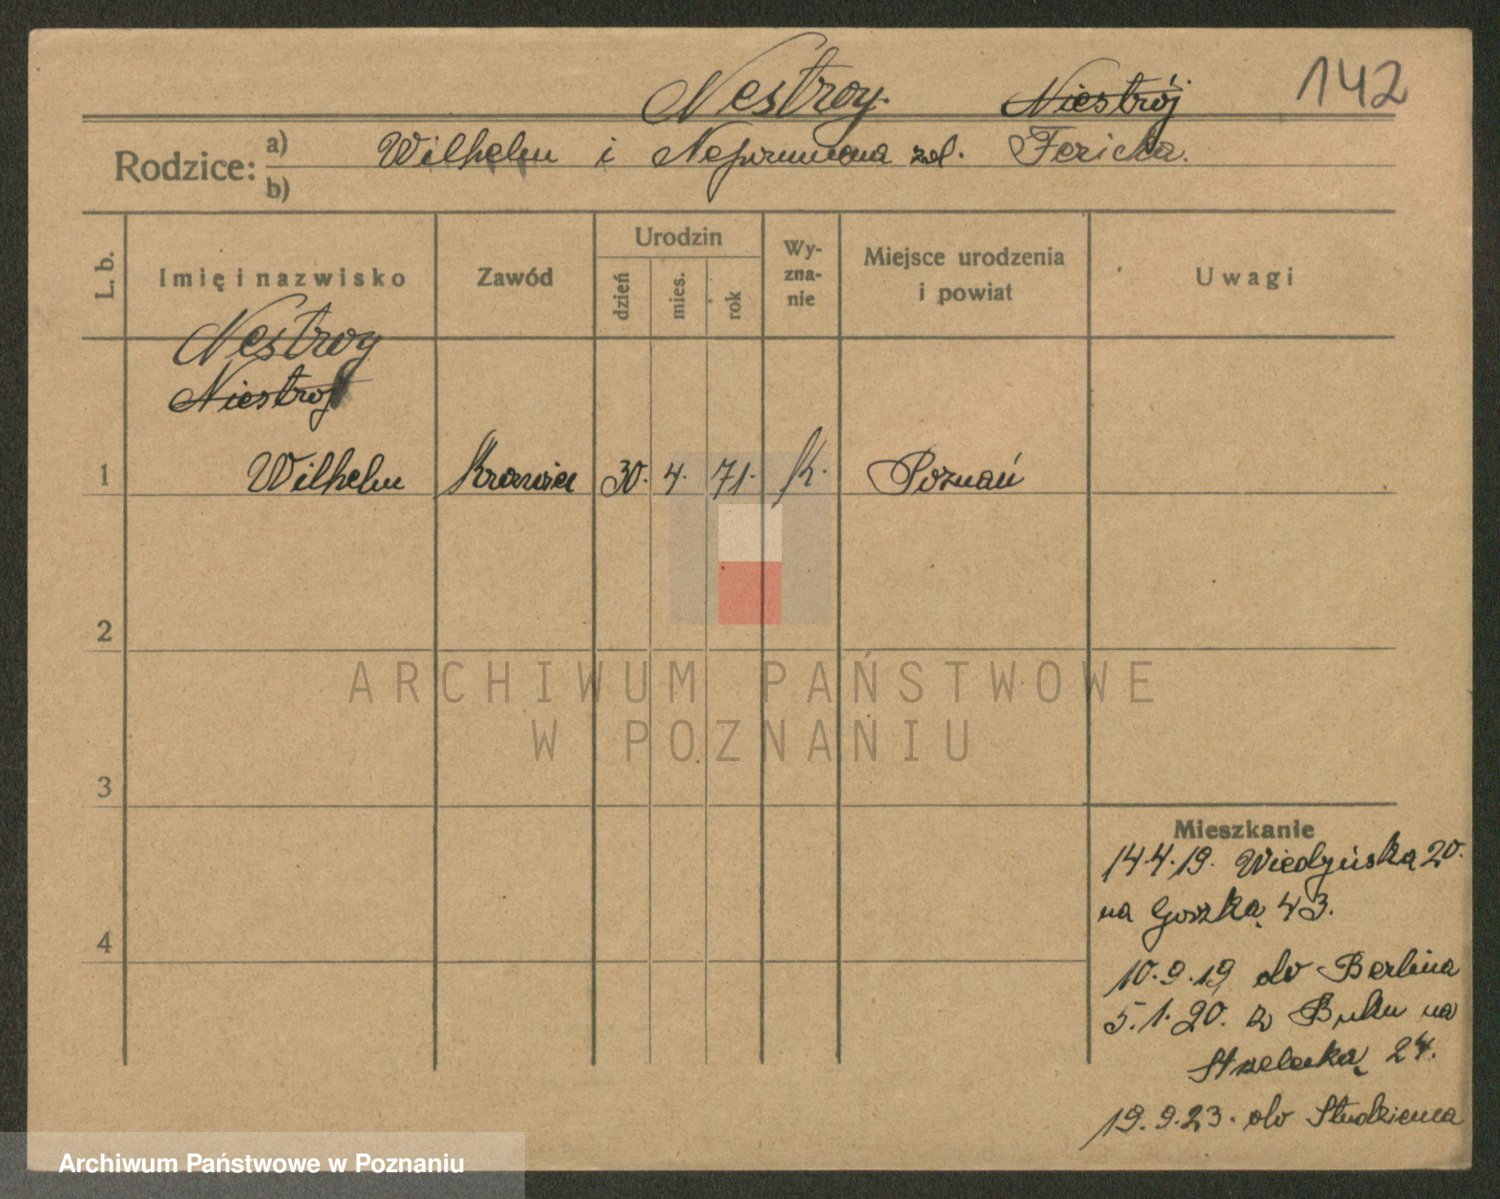 Nestroy. Niestrój 142
Rodzice: a) Wilhelm i Nepomucena zd. Fericka.
b)
L. b. Imię i nazwisko Zawód Urodzin dzień mies. rok Wy-zna-nie Miejsce urodzenia i powiat Uwagi
Nestroy
Niestrój
1 Wilhelm Krawiec 30. 4. 71. k. Poznań
2
ARCHIWUM PAŃSTWOWE
W POZNANIU
3
Mieszkanie
14.4.19. Wiedyńska 20.
na 43.
4
10.9.19 do Berlina
5.1.20. z Buku na
Strzelecką 24.
19.9.23. do Studzienca
Archiwum Państwowe w Poznaniu